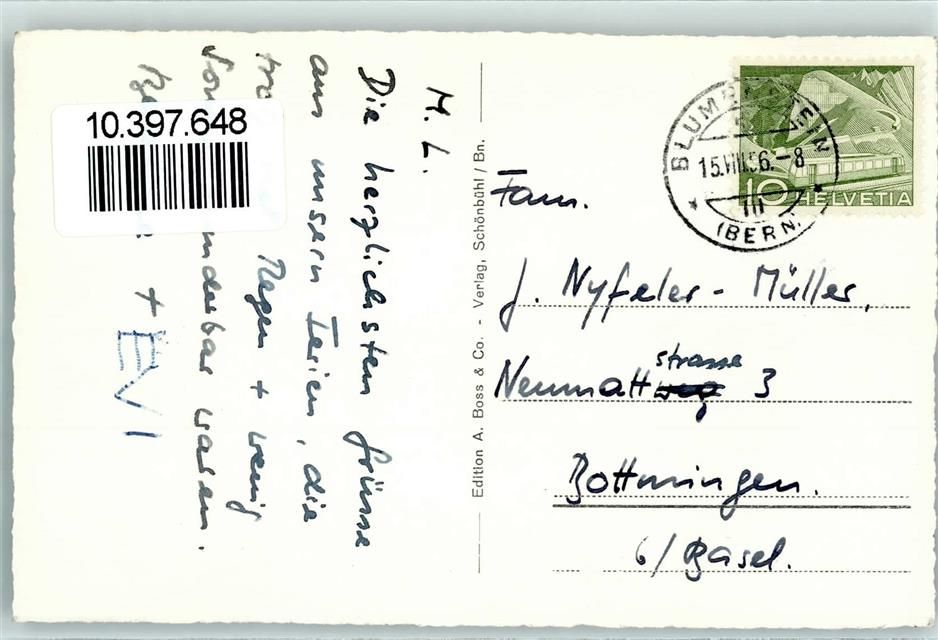 M. L.
Die herzlichsten Grüsse
aus unsern Ferien, die
Regen + wenig
wunderbar waren.
+
EVI
10.397.648
Edition A. Boss & Co. - Verlag, Schönbühl / Bn.
BLUMENSTEIN
15.VIII.56.-8
(BERN)
10 HELVETIA
Fam.
J. Nyfeler - Müller,
Neumattstrasse 3
Bottmingen.
b/Basel.